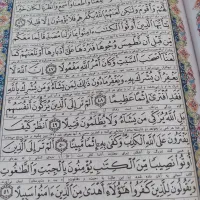 أُوتُوا الْكِتَٰبَ ءَامِنُوا بِمَا نَزَّلْنَا مُصَدِّقًا لِمَا مَعَكُمْ
مِنْ قَبْلِ أَنْ نَطْمِسَ وُجُوهًا فَنَرُدَّهَا عَلَىٰ أَدْبَارِهَا أَوْ نَلْعَنَهُمْ
كَمَا لَعَنَّا أَصْحَٰبَ السَّبْتِ وَكَانَ أَمْرُ اللَّهِ مَفْعُولًا ﴿٤٧﴾ إِنَّ اللَّهَ لَا
يَغْفِرُ أَنْ يُشْرَكَ بِهِ وَيَغْفِرُ مَا دُونَ ذَٰلِكَ لِمَنْ يَشَاءُ وَمَنْ يُشْرِكْ بِاللَّهِ
فَقَدِ افْتَرَىٰ إِثْمًا عَظِيمًا ﴿٤٨﴾ أَلَمْ تَرَ إِلَى الَّذِينَ يُزَكُّونَ أَنْفُسَهُمْ
بَلِ اللَّهُ يُزَكِّي مَنْ يَشَاءُ وَلَا يُظْلَمُونَ فَتِيلًا ﴿٤٩﴾ انْظُرْ كَيْفَ
يَفْتَرُونَ عَلَى اللَّهِ الْكَذِبَ وَكَفَىٰ بِهِ إِثْمًا مُبِينًا ﴿٥٠﴾ أَلَمْ تَرَ إِلَى الَّذِينَ
أُوتُوا نَصِيبًا مِنَ الْكِتَٰبِ يُؤْمِنُونَ بِالْجِبْتِ وَالطَّٰغُوتِ
وَيَقُولُونَ لِلَّذِينَ كَفَرُوا هَٰؤُلَاءِ أَهْدَىٰ مِنَ الَّذِينَ ءَامَنُوا سَبِيلًا ﴿٥١﴾